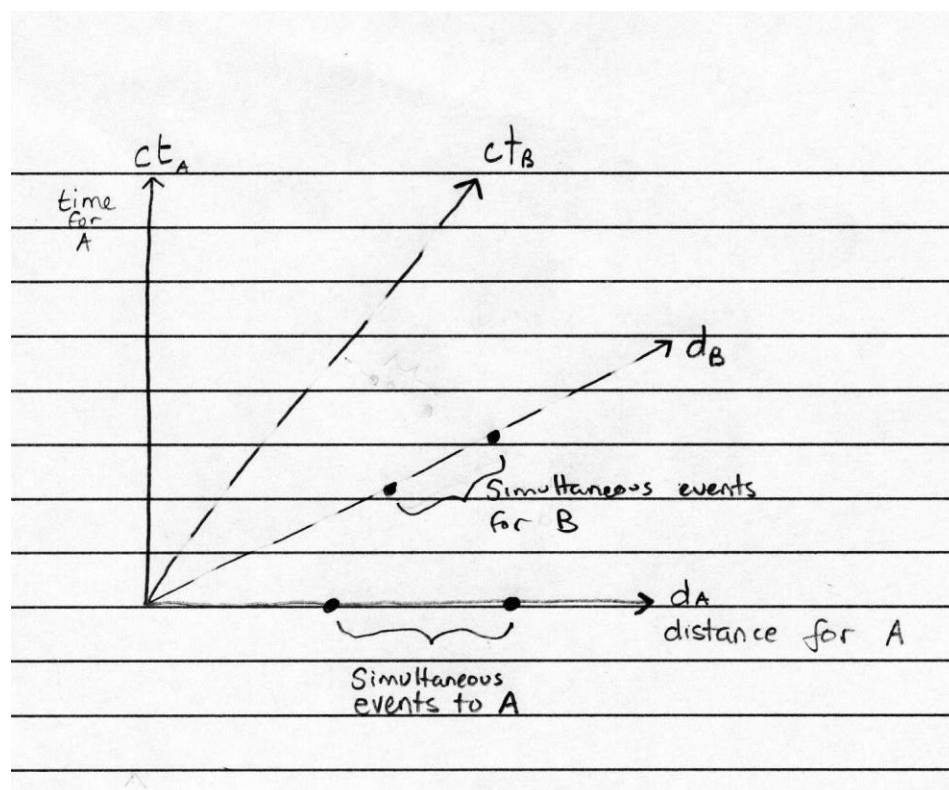 ct_A
ct_B
time
for
A
d_B
Simultaneous events
for B
d_A
distance for A
Simultaneous
events to A